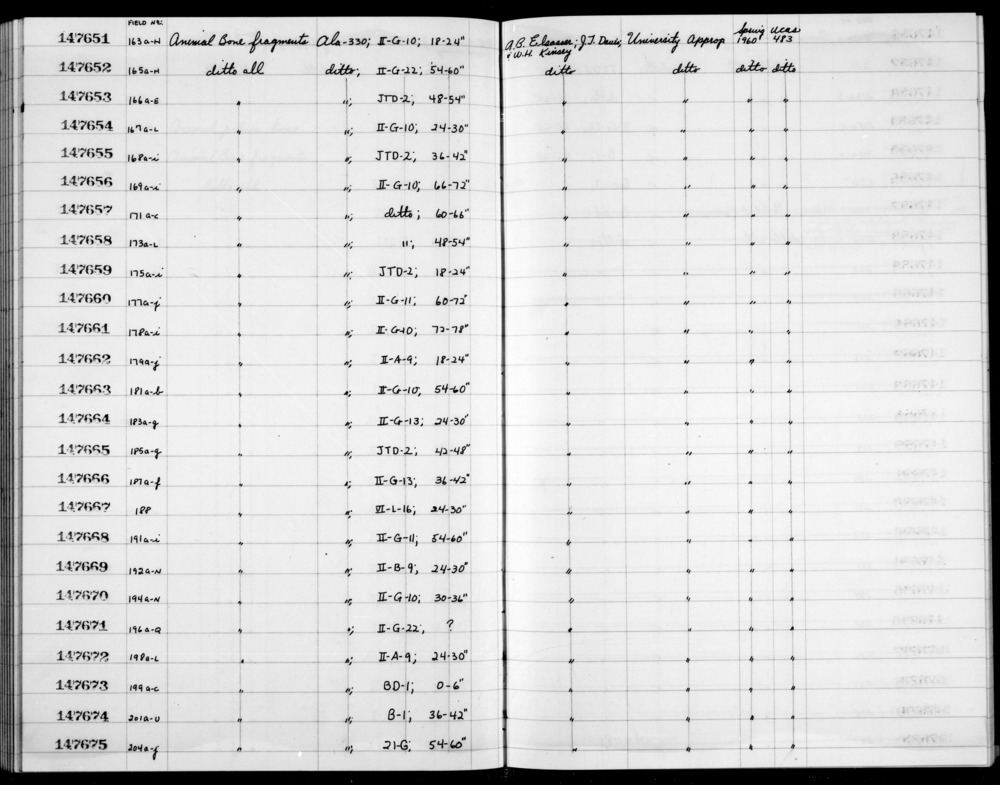 FIELD NO.:
147651 163a-N Animal Bone fragments Ala-330; II-G-10; 18-24" A.B. Elsasser; J.T. Davis; & W.H. Kinsey University Approp Spring 1960 UCAS 483
147652 165a-H ditto all ditto; II-G-22; 54-60" ditto ditto ditto ditto
147653 166a-E " "; JTD-2; 48-54" " " " "
147654 167a-L " "; II-G-10; 24-30" " " " "
147655 168a-i " "; JTD-2; 36-42" " " " "
147656 169a-i " "; II-G-10; 66-72" " " " "
147657 171a-c " "; ditto; 60-66" " " " "
147658 173a-L " "; "; 48-54" " " " "
147659 175a-i " "; JTD-2; 18-24" " " " "
147660 177a-j " "; II-G-11; 60-72" " " " "
147661 178a-i " "; II-G-10; 72-78" " " " "
147662 179a-j " "; II-A-9; 18-24" " " " "
147663 181a-b " "; II-G-10; 54-60" " " " "
147664 183a-g " "; II-G-13; 24-30" " " " "
147665 185a-g " "; JTD-2; 42-48" " " " "
147666 187a-f " "; II-G-13; 36-42" " " " "
147667 188 " "; VI-L-16; 24-30" " " " "
147668 191a-i " "; II-G-11; 54-60" " " " "
147669 192a-N " "; II-B-9; 24-30" " " " "
147670 194a-N " "; II-G-10; 30-36" " " " "
147671 196a-Q " "; II-G-22; ? " " " "
147672 198a-L " "; II-A-9; 24-30" " " " "
147673 199a-c " "; BD-1; 0-6" " " " "
147674 201a-U " "; B-1; 36-42" " " " "
147675 204a-f " "; 21-G; 54-60" " " " "